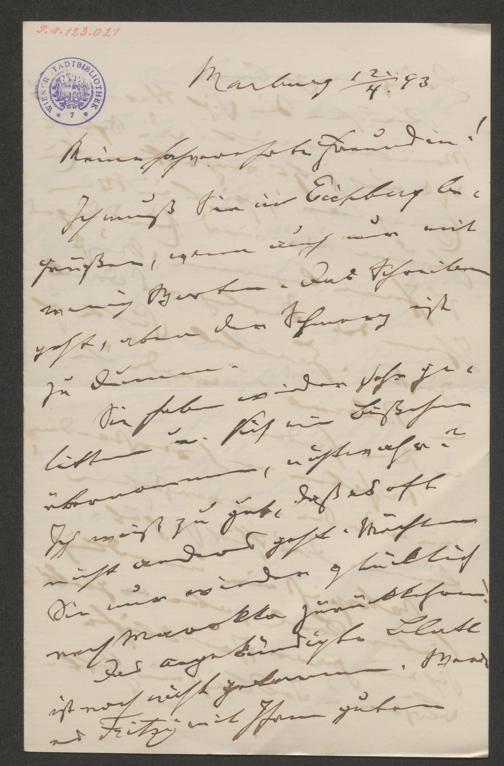 J.N. 123.021
WIENER STADTBIBLIOTHEK
* 7 *
Marburg 12./4. 93
Meine hochverehrte Freundin!
Ich muß Sie in Eichberg be-
grüßen, wenn auch nur mit
wenig Worten. Das Schreiben
geht, aber der Schmerz ist
zu dumm.
Sie haben wieder sehr ge-
litten u. sich ein bißchen
übernommen, nicht wahr?
Ich weiß zu gut, daß es oft
nicht anders geht. Möchten
Sie nur wieder glücklich
nach Marokko zurückkehren!
Das angekündigte Blatt
ist noch nicht gekommen.
es Fritzi mit Ihrem guten